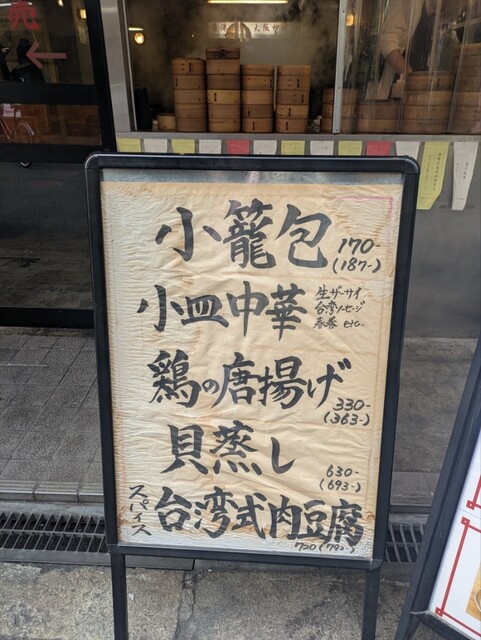 売
←
大阪
小籠包 170-
(187-)
小皿中華 生ザーサイ
台湾ソーセージ
春巻 etc-
鶏の唐揚げ 330-
(363-)
貝蒸し 630-
(693-)
スパイス 台湾式肉豆腐
720 (792-)